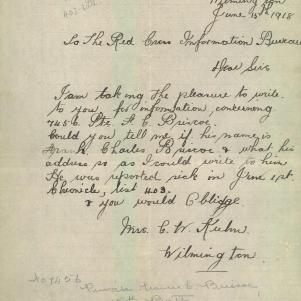 Wilmington
June 15th 1918
To The Red Cross Information Bureau
Dear Sir
I am taking the pleasure to write
to you, for information concerning
7456 Pte. F. C. Briscoe.
Could you tell me if his name is
Frank Charles Briscoe & what his
address so as I could write to him
He was reported sick in June 1st.
Chronicle, list 403.
& you would Oblidge
Mrs. E. W. Kuhn.
Wilmington
No 7456
Private Briscoe
Batt